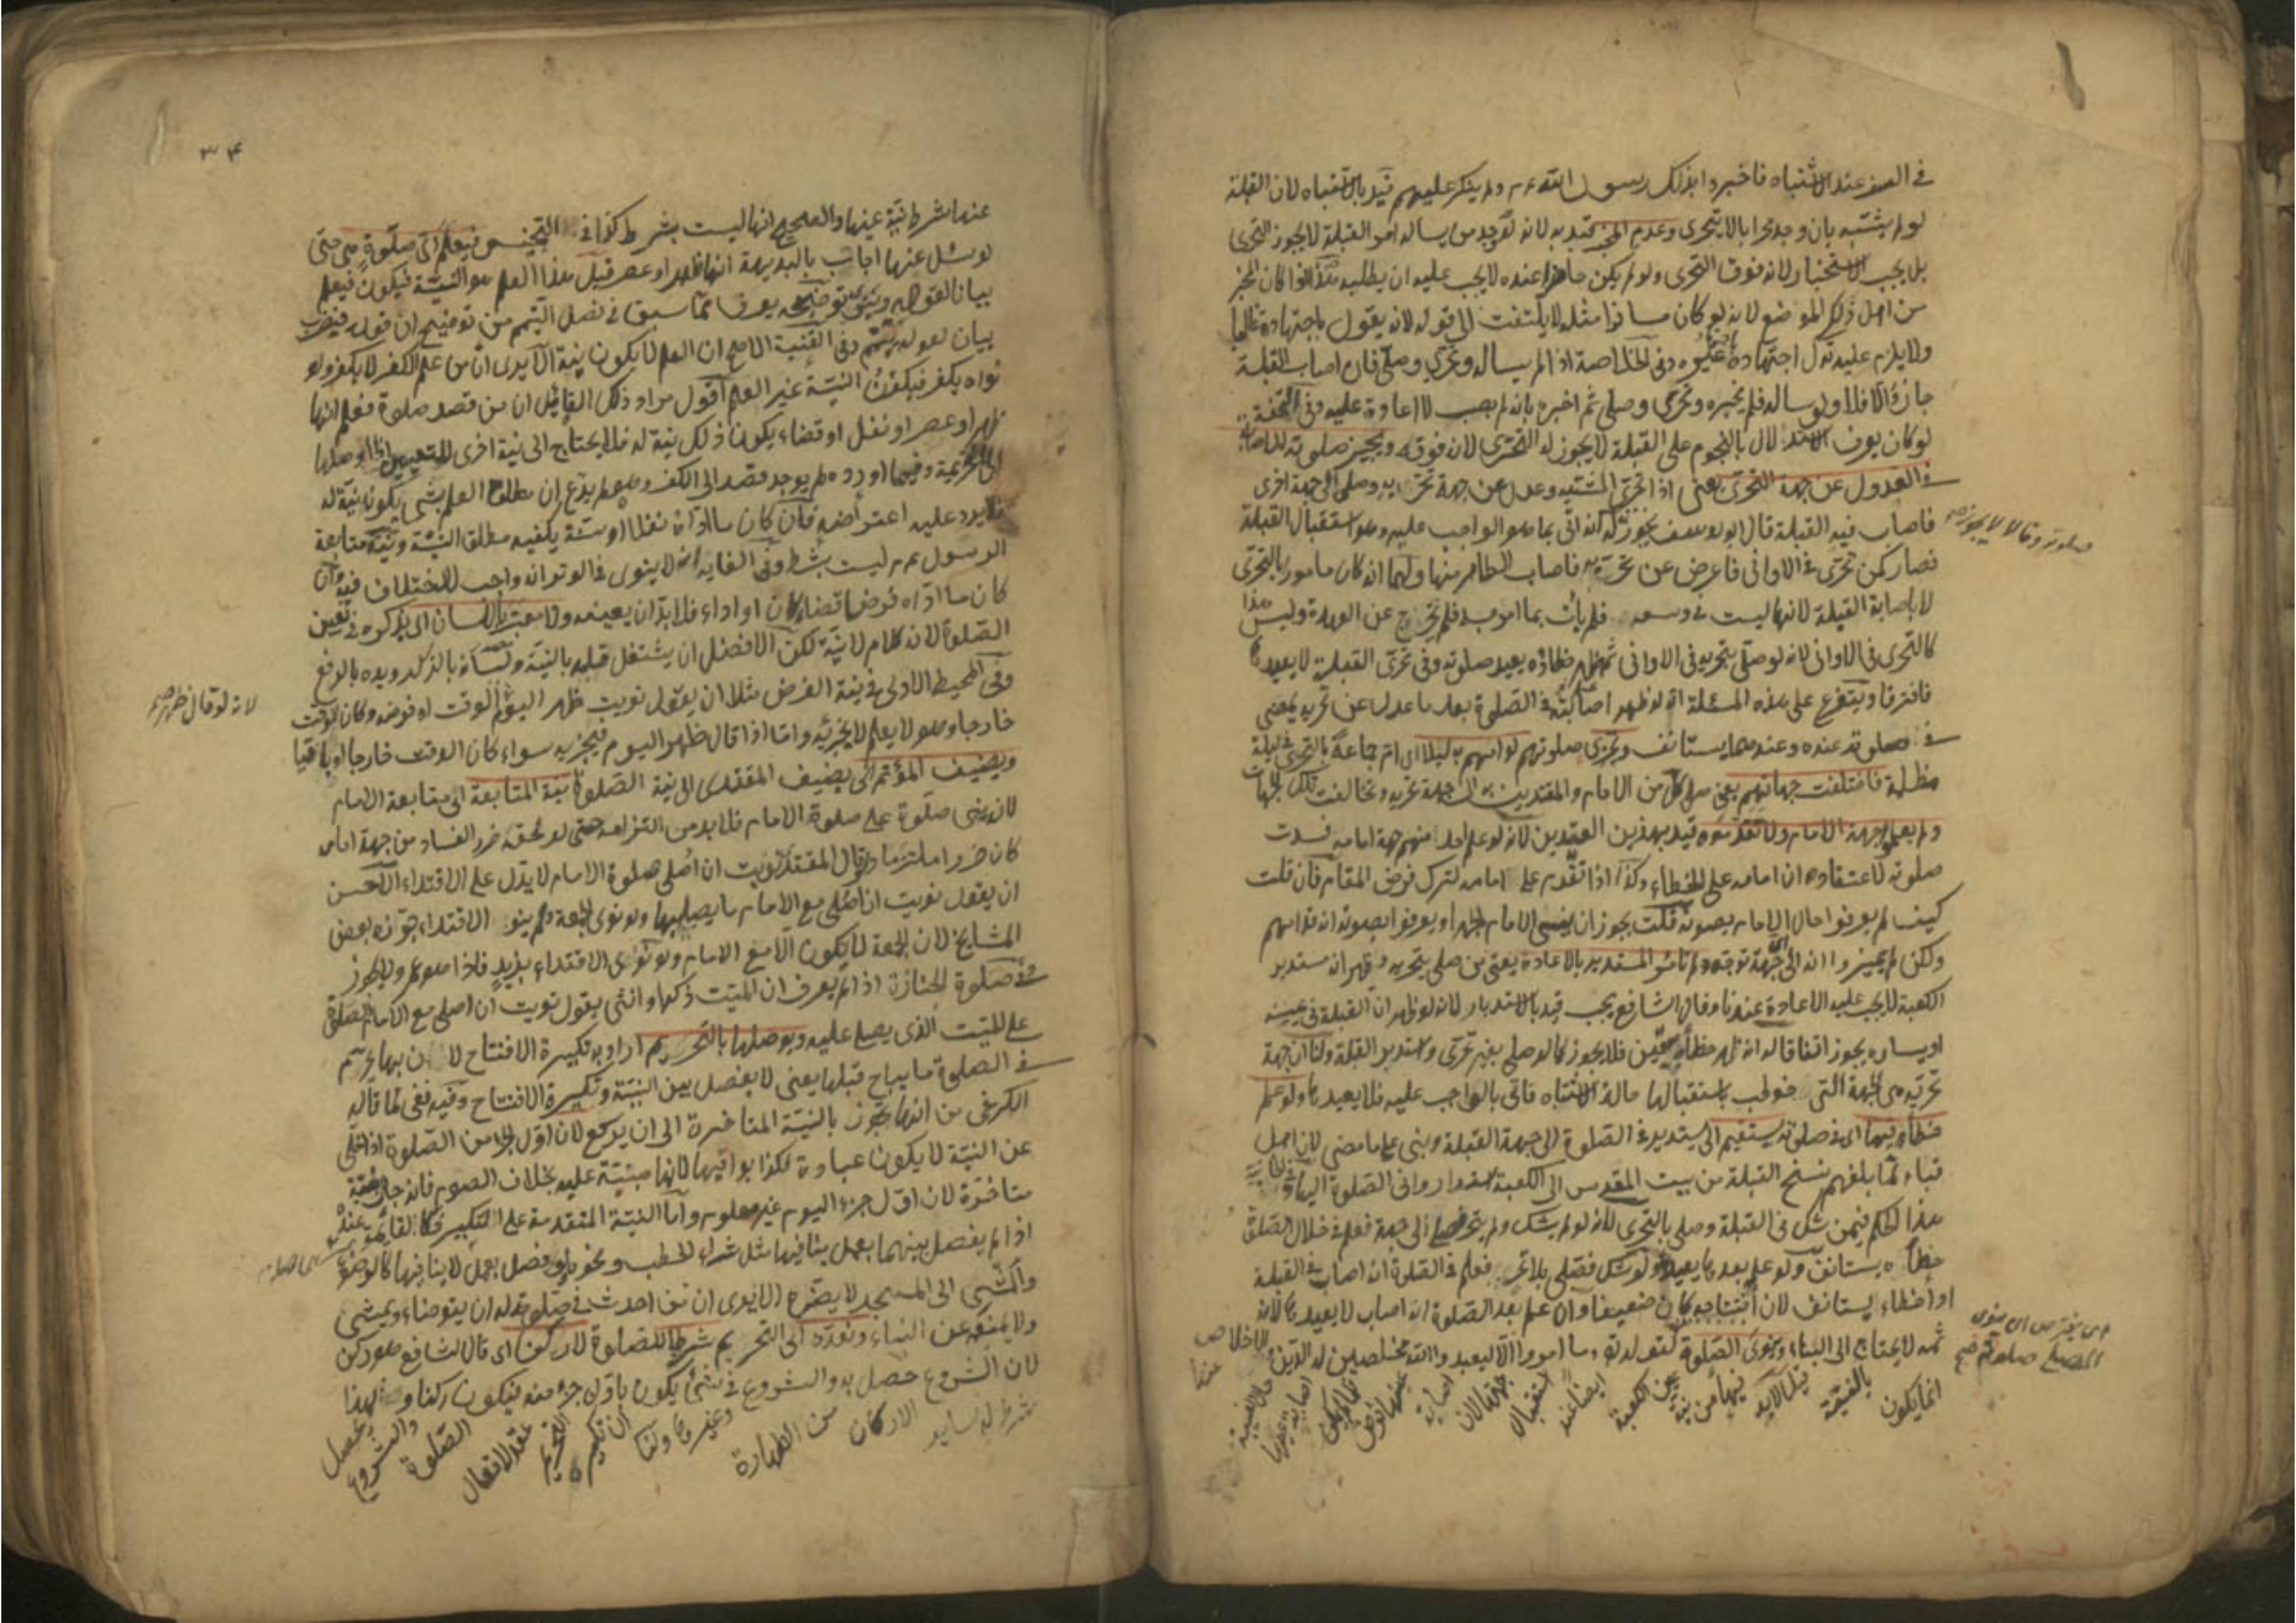 في السفر عند الاشتباه فاخبروا بذلك رسول الله عم ولم ينكر عليهم قيد بالاشتباه لان القبلة
لو لم يشتبه بان وجد محرابا لا يتحرى وعدم المخبر قيد به لانه لو وجد من يساله امر القبلة لا يجوز التحرى
بل يجب الاستخبار لانه فوق التحرى ولو لم يكن حاضرا عنده لا يجب عليه ان يطلبه هذا اذا كان المخبر
من اهل ذلك الموضع لانه لو كان مسافرا مثله لا يلتفت الى قوله لانه يقول باجتهاده غالبا
ولا يلزم عليه ترك اجتهاده باجتهاد غيره وفى الخلاصة اذا لم يساله وتحرى وصلى فان اصاب القبلة
جاز والا فلا ولو ساله فلم يخبره وتحرى وصلى ثم اخبره بانه لم يصب لا اعادة عليه وفى التحفة
لو كان يعرف الاستدلال بالنجوم على القبلة لا يجوز له التحرى لانه فوقه ويجيز صلوته للاصابة
في العدول عن جهة التحرى يعنى اذا تحرى المشتبه وعدل عن جهة تحريه وصلى الى جهة اخرى
فاصاب فيه القبلة قال ابو يوسف يجوز له لانه اتى بما هو الواجب عليه وهو استقبال القبلة
صلوته وقالا لا يجوز صح
فصار كمن تحرى في الاوانى فاعرض عن تحريه فاصاب الطاهر منها ولهما انه كان مامورا بالتحرى
لا باصابة القبلة لانها ليست في وسعه فلم يأت بما امر به فلم يخرج عن العهدة وليس هذا
كالتحرى في الاوانى لانه لو صلى بتحريه في الاوانى ثم ظهر خطاؤه يعيد صلوته وفى تحرى القبلة لا يعيدها
فافترقا ويتفرع على هذه المسئلة انه لو ظهر اصابته في الصلوة بعد ما عدل عن تحريه يمضى
في صلوته عنده وعندهما يستانف وتجزى صلوتهم لو امهم ليلا اى ام جماعة بالتحرى في ليلة
مظلمة فاختلفت جهاتهم يعنى صلى كل من الامام والمقتدين الى جهة تحريه وتخالفت تلك الجهات
ولم يعلموا جهة الامام ولا تقدموه قيد بهذين القيدين لانه لو علم احد منهم جهة امامه فسدت
صلوته لاعتقاده ان امامه على الخطاء وكذا اذا تقدم على امامه لترك فرض المقام فان قلت
كيف لم يعرفوا حال الامام بصوته قلت يجوز ان ينسى الامام الجهر او يعرفوا بصوته انه قدامهم
ولكن لم يميزوا انه الى اى جهة توجه ولم نامر المستدبر بالاعادة يعنى من صلى بتحريه وظهر انه مستدبر
الكعبة لا يجب عليه الاعادة عندنا وقال الشافعى يجب قيد بالاستدبار لانه لو ظهر ان القبلة في يمينه
او يساره يجوز اتفاقا له انه ظهر خطأه بيقين فلا يجوز كما لو صلى بغير تحرى واستدبر القبلة ولنا ان جهة
تحريه هى الجهة التى خوطب باستقبالها حالة الاشتباه فاتى بالواجب عليه فلا يعيدها ولو علم
خطأه فيها اى في صلوته يستقيم اى يستدير في الصلوة الى جهة القبلة وبنى على ما مضى لان اهل
قباء لما بلغهم نسخ القبلة من بيت المقدس الى الكعبة استداروا في الصلوة اليها
هذا الحكم فيمن شك في القبلة وصلى بالتحرى لانه لو لم يشك ولم يتحر وصلى الى جهة فعلم في خلال الصلوة
خطأه يستانف ولو علم بعدها يعيد ولو شك فصلى بلا تحر فعلم في الصلوة انه اصاب القبلة
او اخطاء يستانف لان افتتاحه كان ضعيفا وان علم بعد الصلوة انه اصاب لا يعيدها لانه
ثمه لا يحتاج الى البناء وينوى الصلوة لقوله تع وما امروا الا ليعبدوا الله مخلصين له الدين والاخلاص
انما يكون بالنية

٣٤
عندها شرط نية عينها والصحيح انها ليست بشرط كذا في التجنيس فيعلم اى صلوة هى حتى
لو سئل عنها اجاب بالبديهة انها ظهر او عصر قيل هذا العلم هو النية فيكون فيعلم
بيانا لقوله وينوى توضيحه يعرف مما سبق في فصل التيمم من توضيح ان قوله فيضرب
بيان لقوله يتيمم وفى القنية الاصح ان العلم لا يكون نية الا يرى ان من علم الكفر لا يكفر ولو
نواه يكفر فيكون النية غير العلم اقول مراد ذلك القائل ان من قصد صلوة فعلم انها
ظهر او عصر او نفل او قضاء يكون ذلك نية له فلا يحتاج الى نية اخرى للتعيين اذا اوصلها
الى التحريمة وفيما اورده لم يوجد قصد الى الكفر وهو لم يدع ان مطلق العلم بشئ يكون نية له
فلا يرد عليه اعتراضه فان كان ما اداه نفلا او سنة يكفيه مطلق النية ونية متابعة
الرسول عم ليست بشرط وفى الغاية انه لا ينوى في الوتر انه واجب للاختلاف فيه وان
كان ما اداه فرضا قضاء كان او اداء فلا بد ان يعينه ولا معتبر باللسان اى بذكره في تعيين
الصلوة لانه كلام لا نية لكن الافضل ان يشتغل قلبه بالنية ولسانه بالذكر ويده بالرفع
وفى المحيط الاولى في نية الفرض مثلا ان يقول نويت ظهر اليوم لا الوقت او فرضه وكان الوقت
لانه لو قال ظهر صح
خارجا وهو لا يعلم لا يجزيه واما اذا قال ظهر اليوم فيجزيه سواء كان الوقت خارجا او باقيا
ويضيف المؤتم اى يضيف المقتدى الى نية الصلوة نية المتابعة اى متابعة الامام
لانه يبنى صلوة على صلوة الامام فلا بد من التزامه حتى لو لحقه ضرر الفساد من جهة امامه
كان ضررا ملتزما ولو قال المقتدى نويت ان اصلى صلوة الامام لا يدل على الاقتداء الاحسن
ان يقول نويت ان اصلى مع الامام ما يصليها ولو نوى الجمعة ولم ينو الاقتداء جوزه بعض
المشايخ لان الجمعة لا يكون الا مع الامام ولو نوى الاقتداء بزيد فاذا هو عمرو لا يجوز
في صلوة الجنازة اذا لم يعرف ان الميت ذكر او انثى يقول نويت ان اصلى مع الامام الصلوة
على الميت الذى يصلى عليه ويوصلها بالتحريم اراد به تكبيرة الافتتاح لان بها يحرم
في الصلوة ما يباح قبلها يعنى لا يفصل بين النية وتكبيرة الافتتاح وفيه نفى لما قاله
الكرخى من انها تجوز بالنية المتاخرة الى ان يركع لان اول الجزء من الصلوة اذا خلى
عن النية لا يكون عبادة فكذا بواقيها لانها مبنية عليه بخلاف الصوم فانه جاز بنية
متاخرة لان اول جزء اليوم غير معلوم واما النية المتقدمة على التكبير فكالقائمة عنده
اذا لم يفصل بينهما بعمل ينافيها مثل شراء الحطب ونحوه ولو فصل بعمل لا ينافيها كالوضوء
والمشى الى المسجد لا يضره الا يرى ان من احدث في صلوته له ان يتوضاء ويمشى
ولا يمنعه عن البناء ونعده اى التحريم شرطا للصلوة لا ركنا اى قال الشافعى هو ركن
لان الشروع حصل به والشروع في شئ يكون باول جزء منه فيكون ركنا ولهذا
شرط له سائر الاركان من الطهارة وغيرها ولنا ان تكبيرة التحريم عقد الافعال الصلوة والشروع يحصل